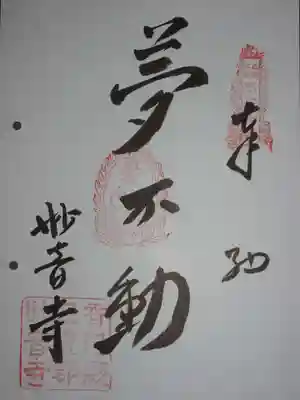 奉納
夢不動
妙音寺